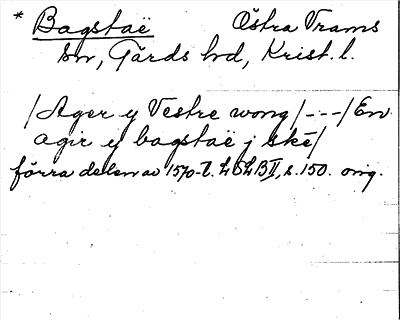 * Bagstaë Östra Vrams
sn, Gärds hd, Krist. l.
/Ager y Vestre wong/---/En
agir y bagstaë j skē/
förra delen av 1570-t. LÖLB II, s. 150. orig.